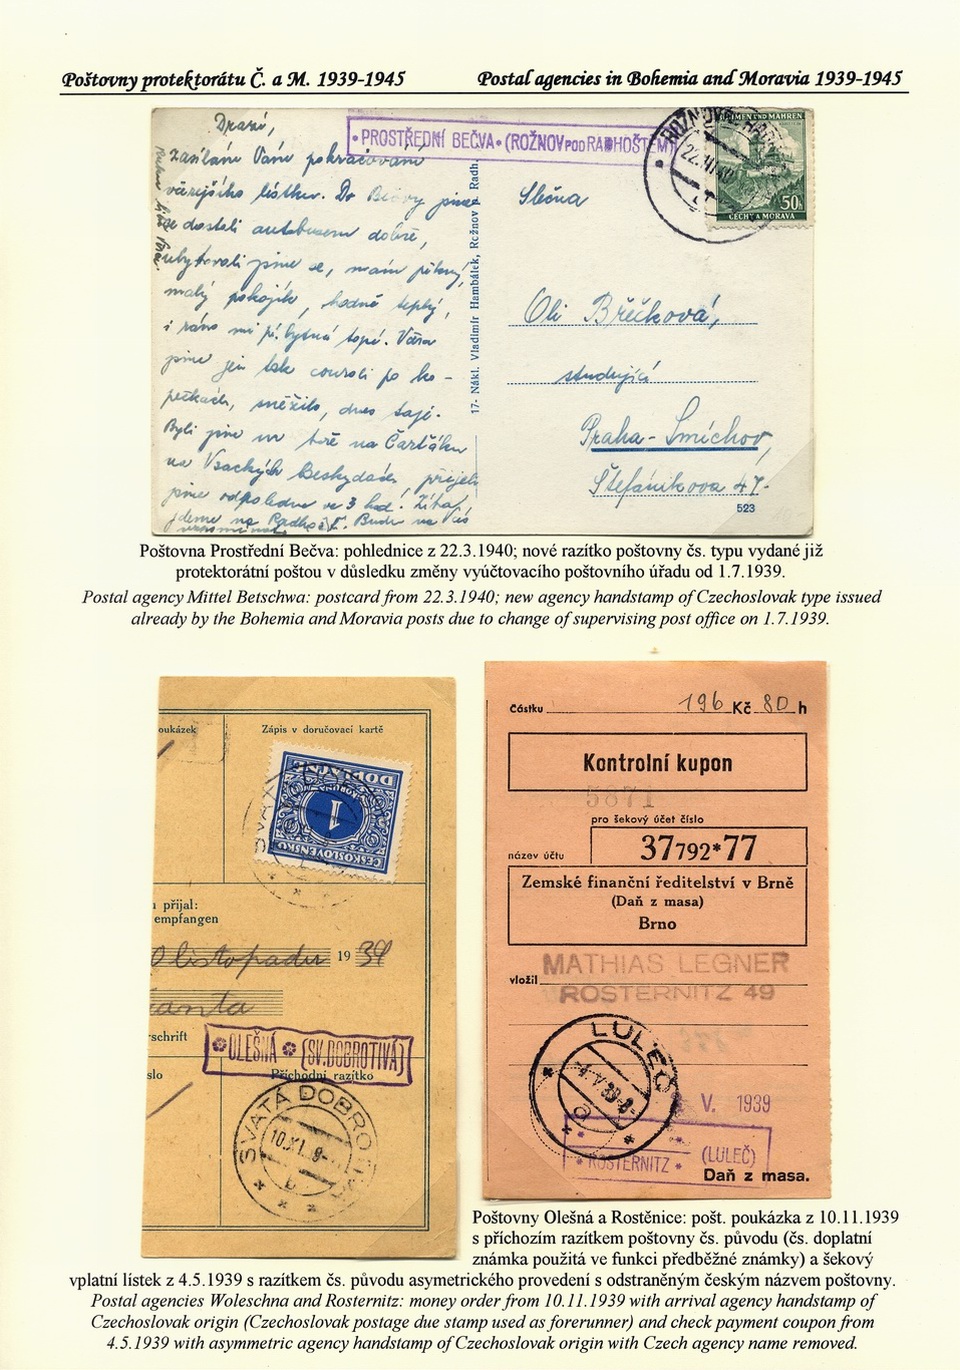 Poštovny protektorátu Č. a M. 1939-1945
Postal agencies in Bohemia and Moravia 1939-1945
• PROSTŘEDNÍ BEČVA • (ROŽNOV POD RADHOŠTEM)
BÖHMEN UND MÄHREN
50h
ČECHY A MORAVA
Drazí,
zasílám Vám pokračování
včerejšího lístku. Do Bečvy jsme
se dostali autobusem dobře,
ubytovali jsme se, mám pěkný,
malý pokojík, hodně teplý,
i ráno mi
topí. Včera
jsme jen tak courali po ko-
pečkách, sněžilo, dnes taje.
Byli jsme na Čarťáku
na Vsackých Beskydách, přijeli
jsme odpoledne ve 3 hod. Zítra
jdeme na Radhošť.
17- Nákl. Vladimír Hambálek, Rožnov p. Radh.
Slečna
Oli Břečková,
studující
Praha - Smíchov,
Štefánikova 47.
523
Poštovna Prostřední Bečva: pohlednice z 22.3.1940; nové razítko poštovny čs. typu vydané již
protektorátní poštou v důsledku změny vyúčtovacího poštovního úřadu od 1.7.1939.
Postal agency Mittel Betschwa: postcard from 22.3.1940; new agency handstamp of Czechoslovak type issued
already by the Bohemia and Moravia posts due to change of supervising post office on 1.7.1939.
oukázek
Zápis v doručovací kartě
DOPLATNÉ
1
KORUNA
ČESKOSLOVENSKO
přijal:
empfangen
listopadu 1939
schrift
OLEŠNÁ (SV. DOBROTIVÁ)
slo
Příchodní razítko
SVATÁ DOBROTIVÁ
10.XI.
Částku 196 Kč 80 h
Kontrolní kupon
5871
pro šekový účet číslo
37792*77
název účtu
Zemské finanční ředitelství v Brně
(Daň z masa)
Brno
vložil
MATHIAS LEGNER
ROSTERNITZ 49
LULEČ
-4.V.39-8-
V. 1939
• ROSTERNITZ • (LULEČ)
Daň z masa.
Poštovny Olešná a Rostěnice: pošt. poukázka z 10.11.1939
s příchozím razítkem poštovny čs. původu (čs. doplatní
známka použitá ve funkci předběžné známky) a šekový
vplatní lístek z 4.5.1939 s razítkem čs. původu asymetrického provedení s odstraněným českým názvem poštovny.
Postal agencies Woleschna and Rosternitz: money order from 10.11.1939 with arrival agency handstamp of
Czechoslovak origin (Czechoslovak postage due stamp used as forerunner) and check payment coupon from
4.5.1939 with asymmetric agency handstamp of Czechoslovak origin with Czech agency name removed.